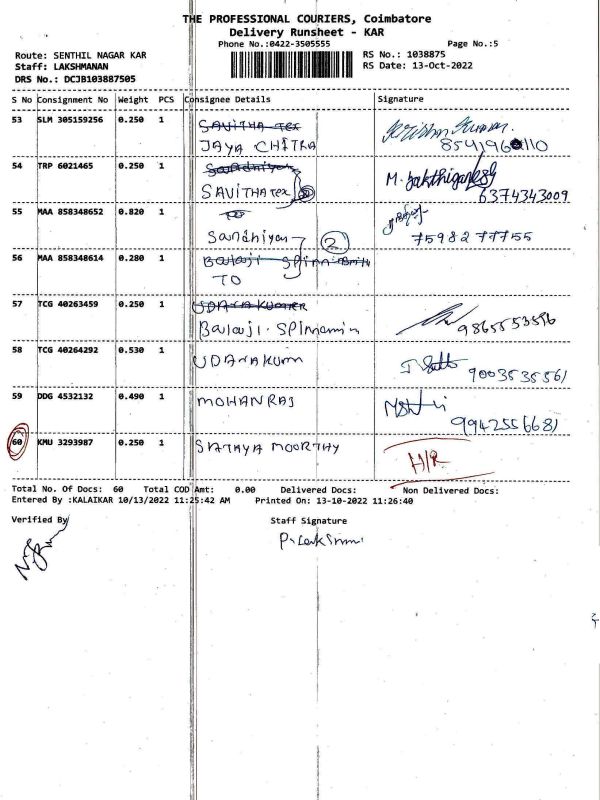 THE PROFESSIONAL COURIERS, Coimbatore
Delivery Runsheet - KAR
Phone No.:0422-3505555 Page No.:5
Route: SENTHIL NAGAR KAR RS No.: 1038875
Staff: LAKSHMANAN RS Date: 13-Oct-2022
DRS No.: DCJB103887505
S No Consignment No Weight PCS Consignee Details Signature
53 SLM 305159256 0.250 1 SAVITHA Tex
JAYA CHITRA
54 TRP 6021465 0.250 1 Sandhiyan
SAVITHA Tex M. Sakthiganesh
6374343009
55 MAA 858348652 0.820 1 TO
Sandhiyan 7598277755
2
56 MAA 858348614 0.280 1 Balaji
TO
57 TCG 40263459 0.250 1 UDAYAKUMER
Balaji. 9865553596
58 TCG 40264292 0.530 1 UDAYAKUM
9003535561
59 DDG 4532132 0.490 1 MOHANRAJ
9942556681
60 KMU 3293987 0.250 1 SATHYA MOORTHY H/R
Total No. Of Docs: 60 Total COD Amt: 0.00 Delivered Docs: Non Delivered Docs:
Entered By :KALAIKAR 10/13/2022 11:25:42 AM Printed On: 13-10-2022 11:26:40
Verified By Staff Signature